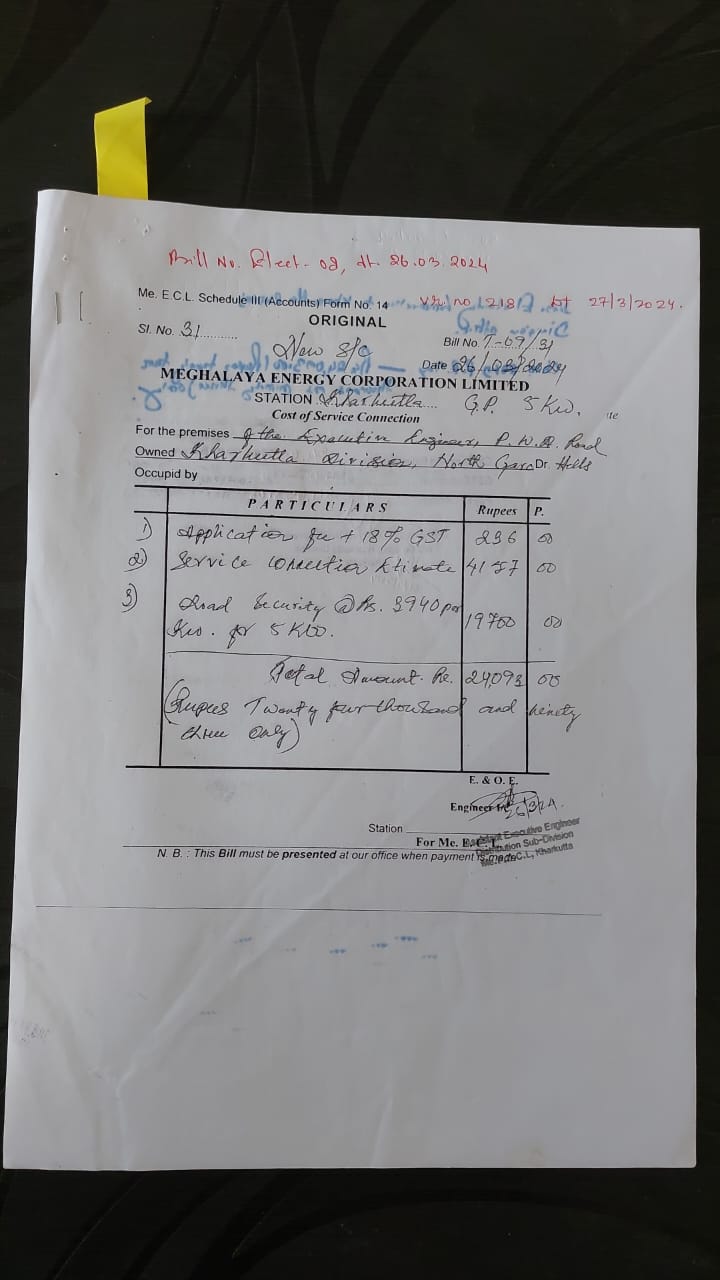 Bill No. Elect- 02, dt. 26.03.2024
Me. E.C.L. Schedule III (Accounts) Form No. 14 vr. no. 2181 dt 27/3/2024.
ORIGINAL
Sl. No. 31
Bill No. T-09/31
New S/C
Date 26/03/2024
MEGHALAYA ENERGY CORPORATION LIMITED
STATION Kharkutta G.P. 5 KW.
Cost of Service Connection
For the premises of the Executive Engineer, P.W.D. Road
Owned Kharkutta Division, North Garo Dr. Hills
Occupid by
PARTICULARS Rupees P.
1) Application fee + 18% GST 236 00
2) Service connection Etimate 4157 00
3) Load Security @ Rs. 3940 per 19700 00
KW. for 5 KW.
Total Amount Rs. 24093 00
(Rupees Twenty four thousand and ninety
three only)
E. & O. E.
Engineer 26/3/24.
Station
For Me. E.C.L.
Assistant Executive Engineer
Distribution Sub-Division
Kharkutta
N. B. : This Bill must be presented at our office when payment is made